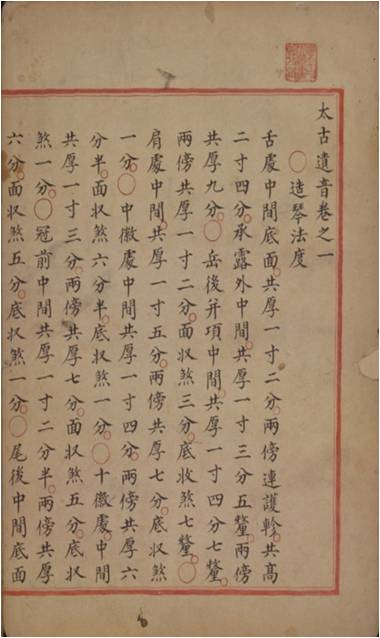 太古遺音卷之一
○造琴法度
舌處中間底面共厚一寸二分兩傍連護軫共高
二寸四分承露外中間共厚一寸三分五釐兩傍
共厚九分○岳後并項中間共厚一寸四分七釐
兩傍共厚一寸二分面収煞三分底收煞七釐○
肩處中間共厚一寸五分兩傍共厚七分底収煞
一分○中徽處中間共厚一寸四分兩傍共厚六
分半面収煞六分半底収煞一分○十徽處中間
共厚一寸三分兩傍共厚七分面収煞五分底収
煞一分○冠前中間共厚一寸二分半兩傍共厚
六分面収煞五分底収煞一分○尾後中間底面